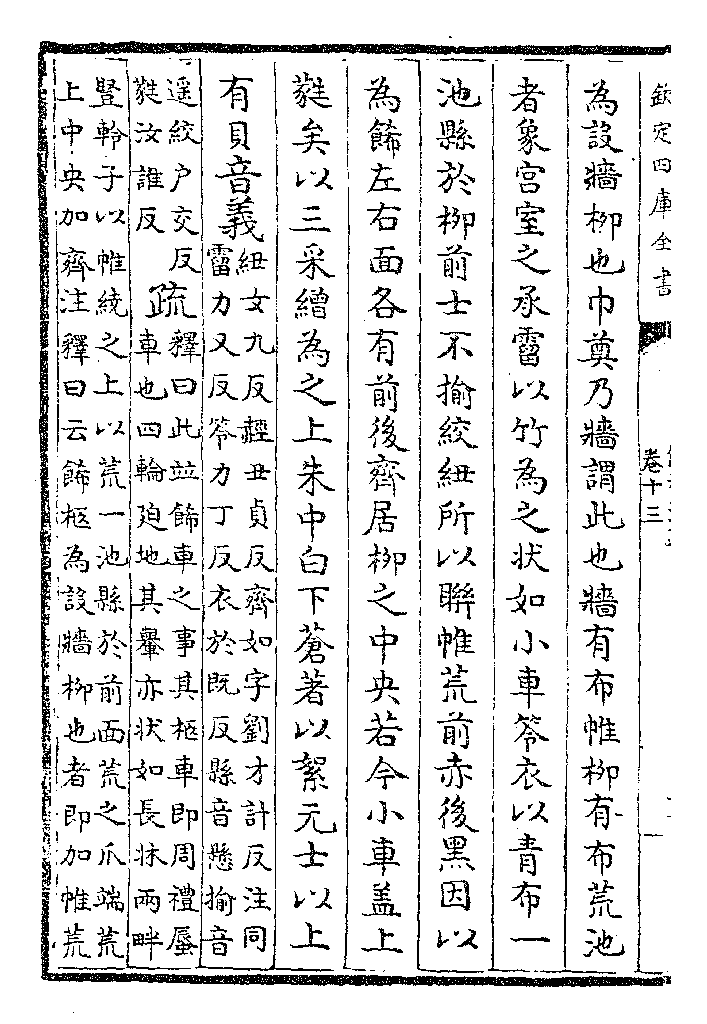 欽定四庫全書
卷十三
為設牆柳也巾奠乃牆謂此也牆有布帷柳有布荒池
者象宮室之承霤以竹為之状如小車笭衣以青布一
池縣於栁前士不揄絞紐所以聯帷荒前赤後黑因以
為餙左右面各有前後齊居栁之中央若今小車盖上
蕤矣以三采繒為之上朱中白下蒼著以絮元士以上
有貝音義紐女九反䞓丑貞反齊如字劉才計反注同
霤力又反笭力丁反衣於既反縣音懸揄音
遥絞户交反
蕤汝誰反疏釋曰此並餙車之事其柩車即周禮蜃
車也四輪廹地其轝亦状如長牀兩畔
豎軨子以帷繞之上以荒一池縣於前面荒之爪端荒
上中央加齊注釋曰云餙柩為設牆栁也者即加帷荒